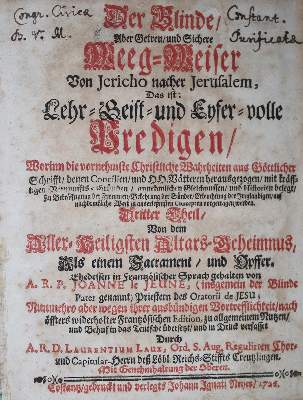 Congr. Civica
B. V. M.
Constant.
Purificatæ
Der Blinde/
Aber Getreu/ und Sichere
Weeg-Weiser
Von Jericho nacher Jerusalem,
Das ist:
Lehr- Geist- und Eyfer-volle
Predigen/
Worinn die vornehmste Christliche Wahrheiten aus Göttlicher
Schrifft/ denen Concilien/ und HH. Vättern herausgezogen/ mit kräff-
tigen Vernunffts-Gründen/ annemlichen Gleichnussen/ und Historien belegt/
Zu Bekehrung der Sünder/
Dritter Theil/
Von dem
Aller-Heiligsten Altars-Geheimnus,
Als einem Sacrament/ und Opffer.
Ehedessen in Frantzösischer Sprach gehalten von
A. R. P. JOANNE le JEUNE, (insgemein der Blinde
Pater genannt) Priestern des Oratorii de JESU;
Nunmehro aber wegen ihrer ausbündigen Vortrefflichkeit/ nach
öffters widerholter Frantzösischen Edition, zu allgemeinem Nutzen/
und Behuf in das Teutsche übersetzt/ und in Druck verfasset
Durch
A. R. D. LAURENTIUM LAUX, Ord. S. Aug. Regulirten Chor-
und Capitular-Herrn deß Löbl. Reichs-Stiffts Creutzlingen.
Mit Genehmhaltung der Oberen.
Costantz/ gedruckt und verlegts Johann Ignati Neyer/ 172